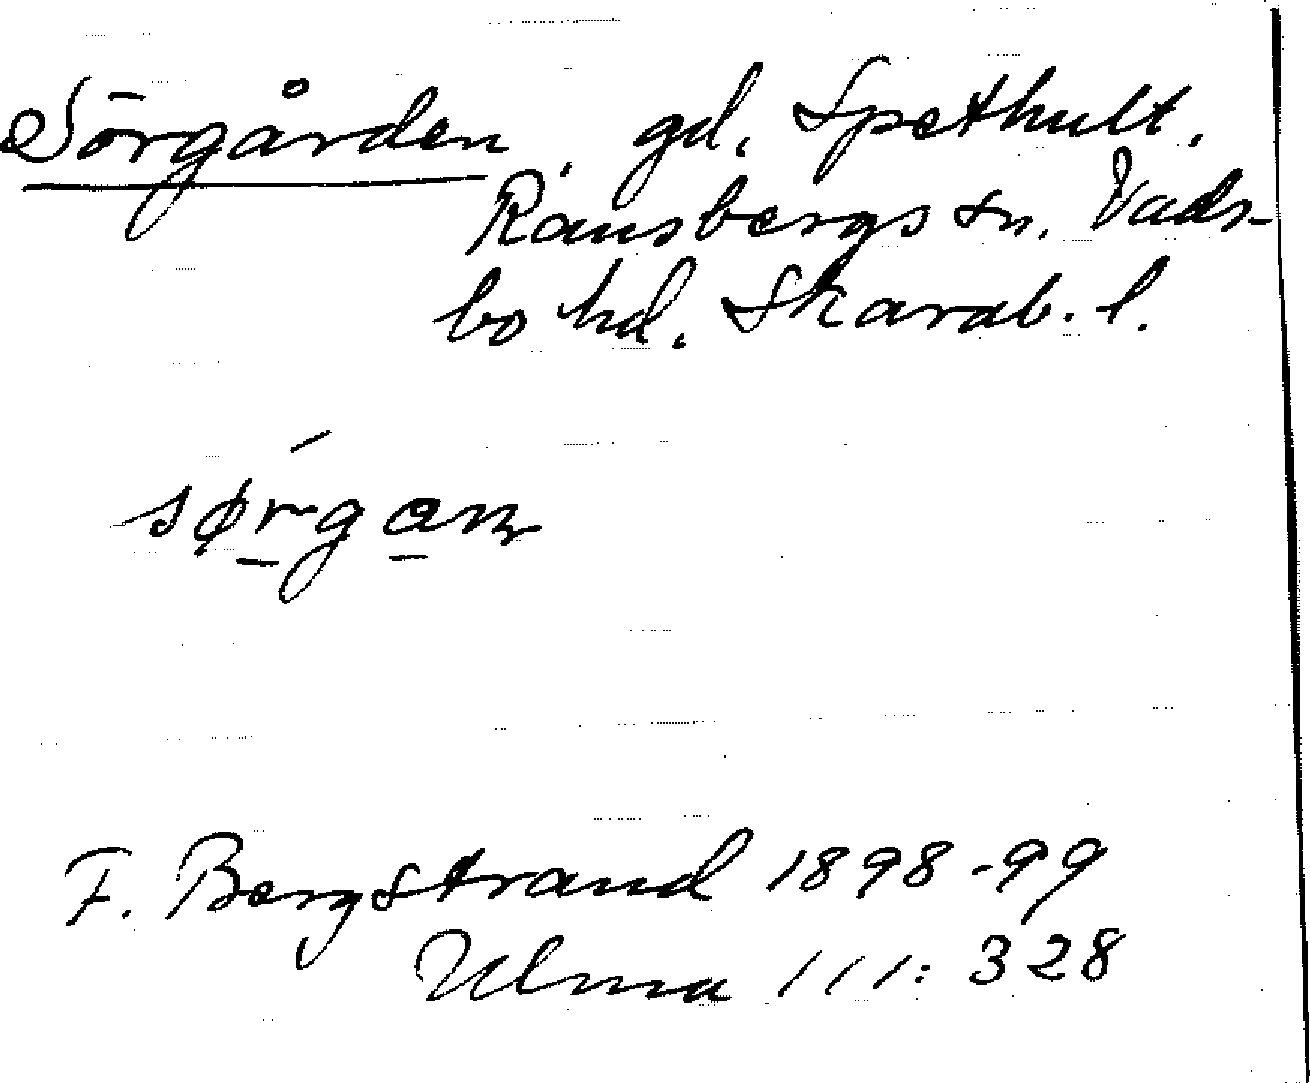 Sörgården, gd, Spethult,
Ransbergs sn, Vads-
bo hd, Skarab. l.
sørgan
F. Bergstrand 1898-99
Ulma 111: 328